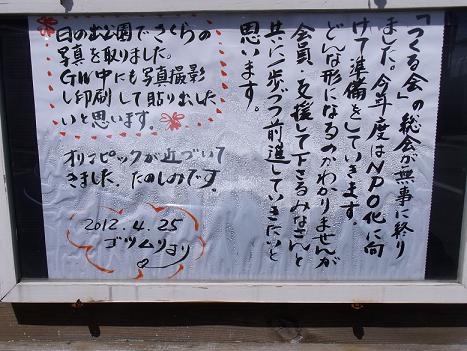 「つくる会」の総会が無事に終り
ました。今年度はNPO化に向
けて準備をしていきます。
どんな形になるのかわかりませんが
会員・支援して下さるみなさんと
共に一歩づつ前進していきたいと
思います。
日の出公園でさくらの
写真を取りました。
GW中にも写真撮影
し印刷して貼り出した
いと思います。
オリンピックが近づいて
きました。たのしみです。
2012.4.25
ゴツムリより